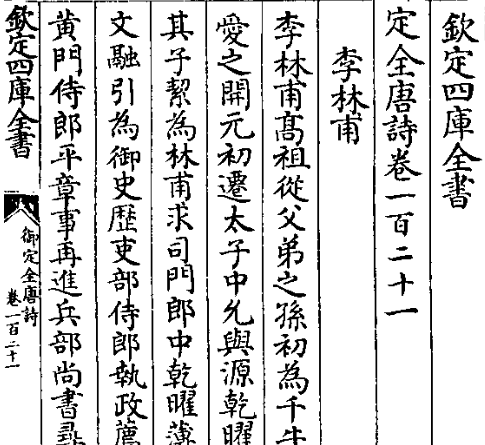 欽定四庫全書
定全唐詩卷一百二十一
李林甫
李林甫髙祖從父弟之孫初為千牛
愛之開元初遷太子中允與源乾曜
其子絜為林甫求司門郎中乾曜薄
文融引為御史歴吏部侍郎執政薦
黄門侍郎平章事再進兵部尚書尋
欽定四庫全書
御定全唐詩
卷一百二十一